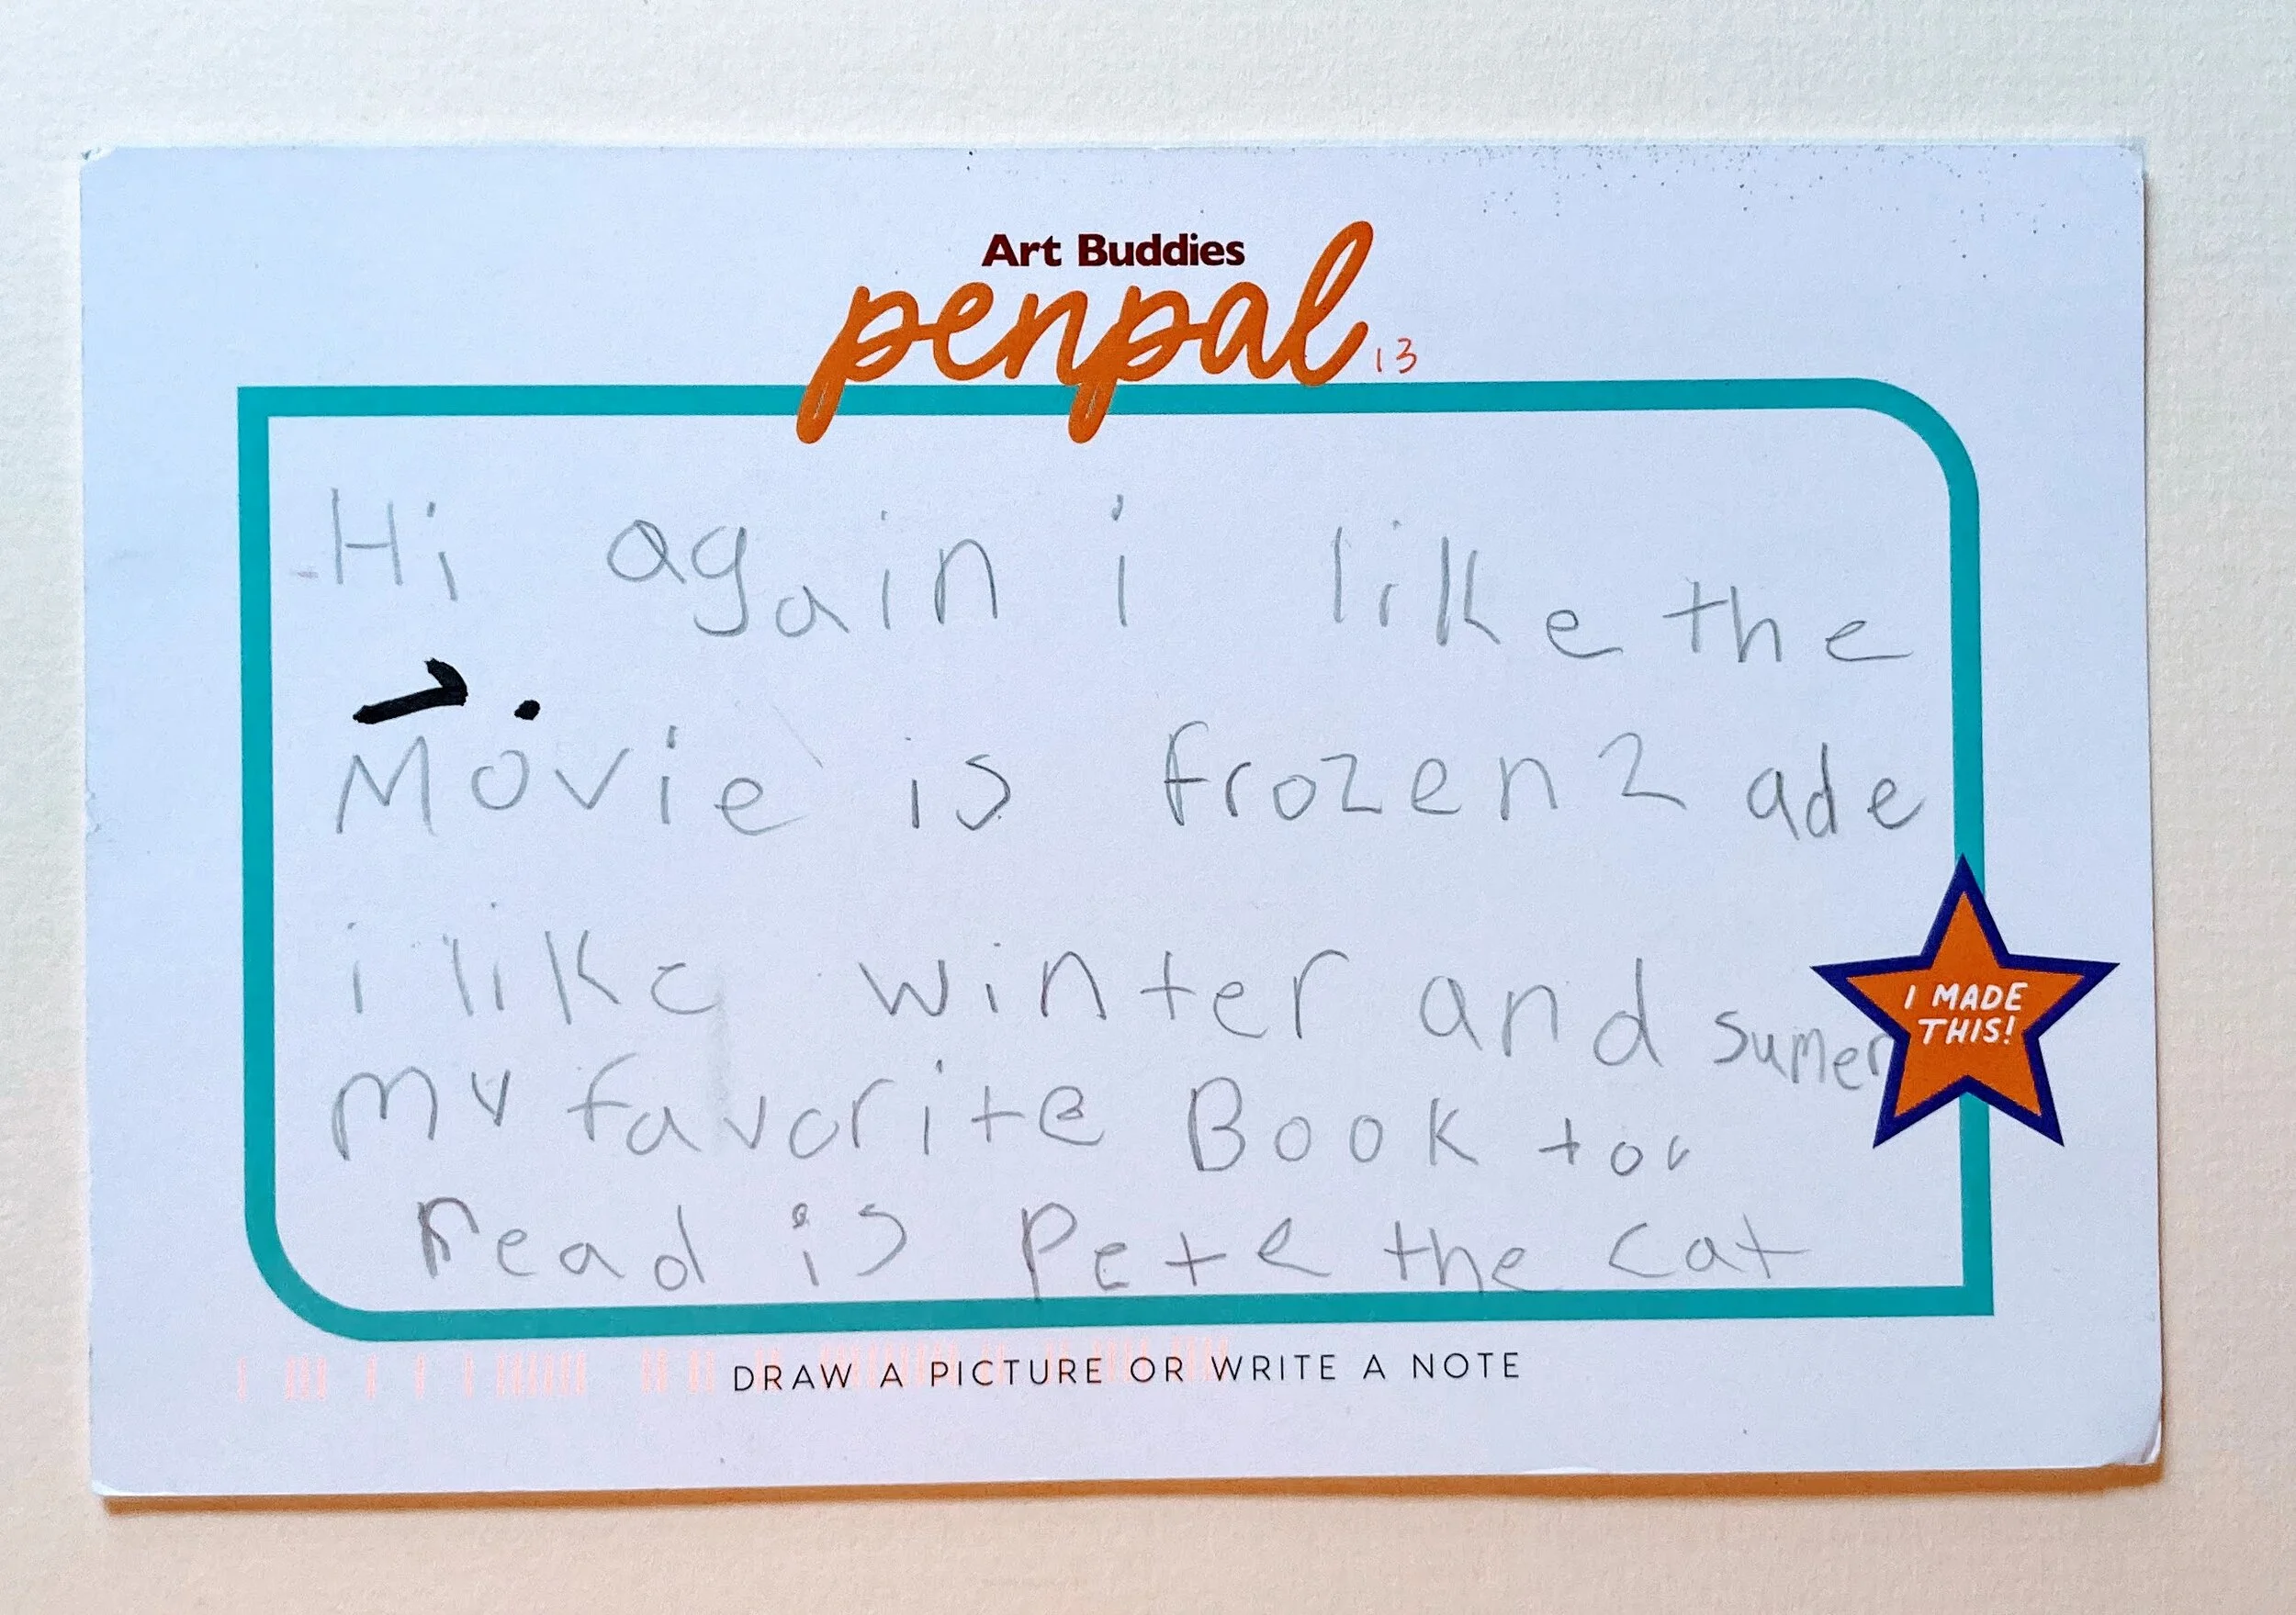 Art Buddies
penpal 13
Hi again i like the
Movie is frozen 2 ade
i like winter and sumer
I MADE
THIS!
my favorite Book too
read is Pete the cat
DRAW A PICTURE OR WRITE A NOTE